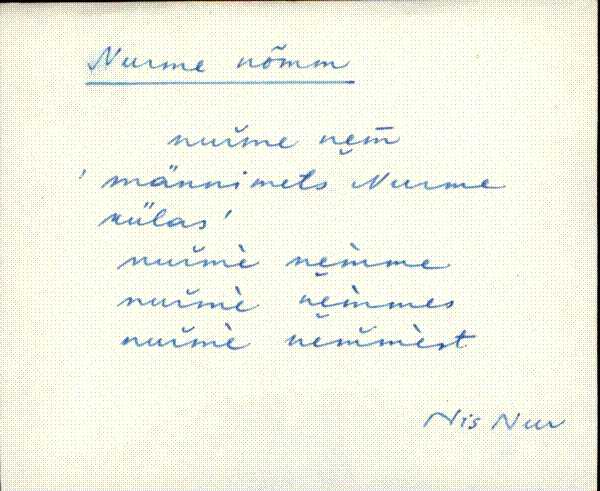 Nurme nõmm
nuŕme nę̆m̄
'männimets Nurme
külas'
nuŕmè nę̆m̀me
nuŕmè nę̆m̀mes
nuŕmè nę̆m̆mèst
Nis Nur